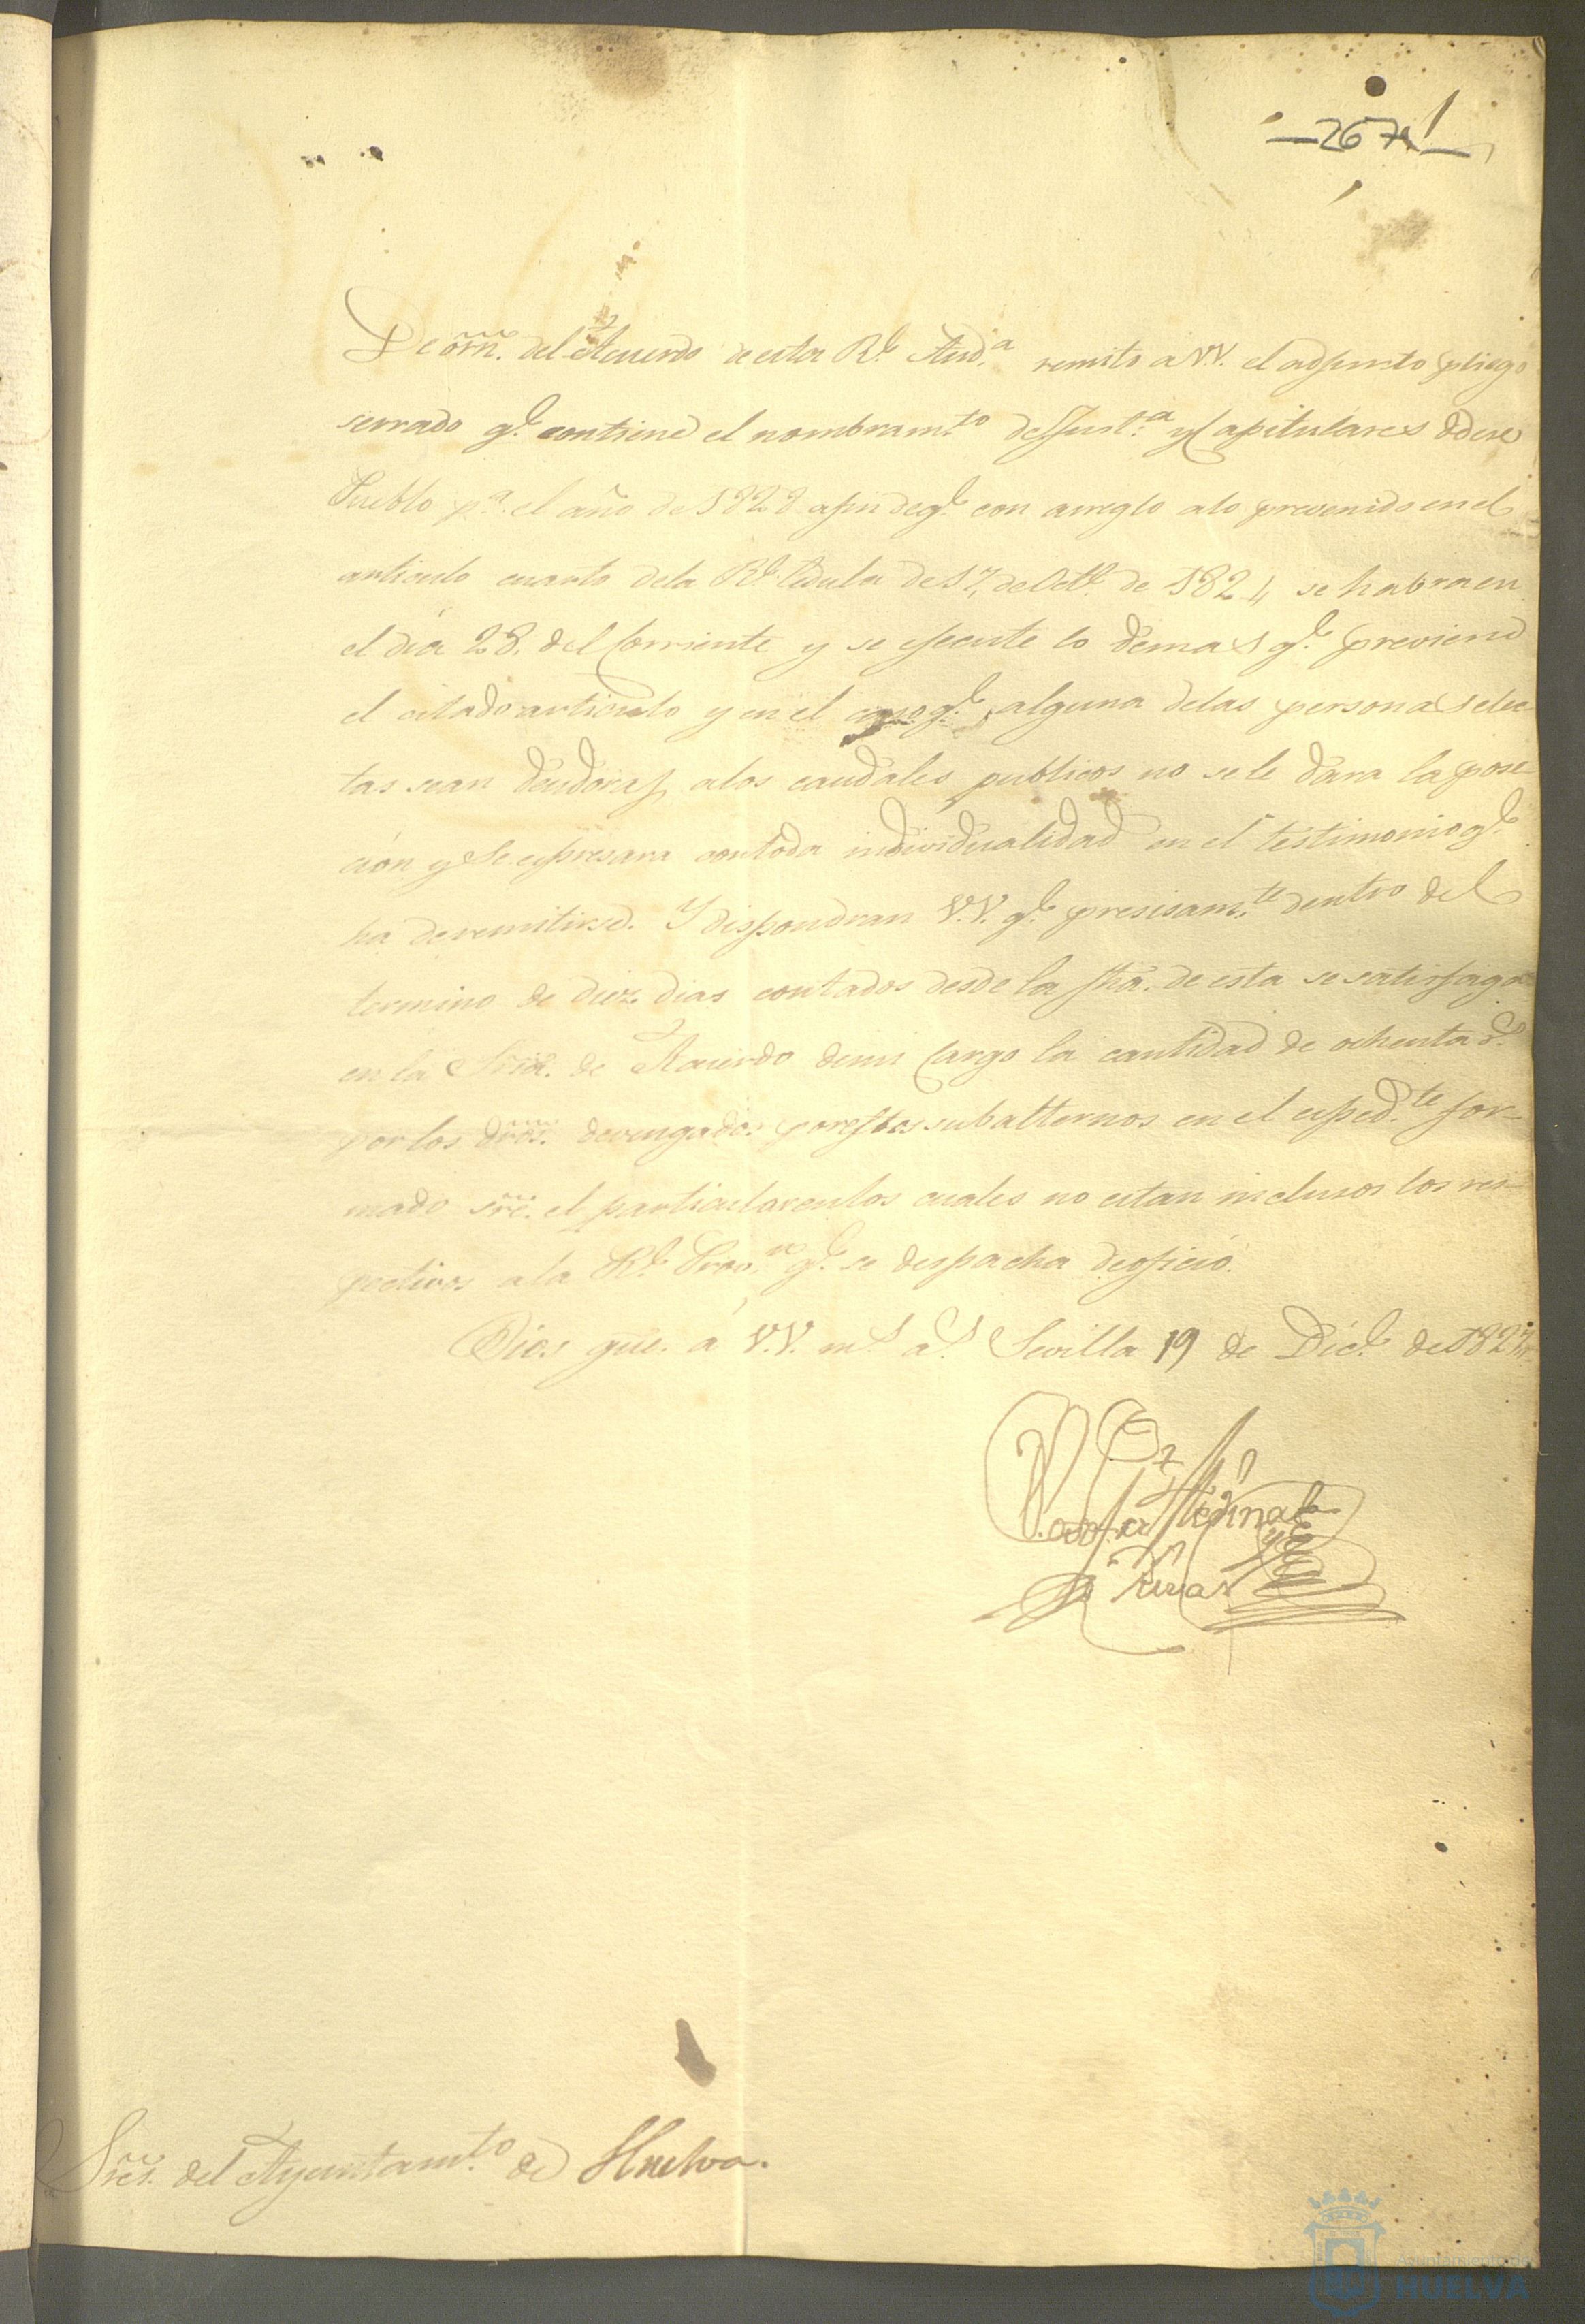 267
De orñ. del Acuerdo de esta Rl. Auda. remito a VV. el adjunto pliego
serrado qe. contiene el nombramto. de Justa. y Capitulares de ese
Pueblo pa. el año de 1828 afin de qe. con arreglo alo prevenido en el
articulo cuarto dela Rl. Cedula de 17, de Octe. de 1824 se habra en
el día 28. del Corriente y se ejecute lo demas qe. previene
el citado articulo y en el caso qe. alguna delas personas elec-
tas sean deudoras alos caudales publicos no sele dara la pose-
ción y Se espresara contoda individualidad en el testimonio qe.
ha de remitirse. Y dispondran V.V. qe. presisamte. dentro del
termino de diez dias contados desde la fha. de esta se satisfaga
en la Sria. de Acuerdo demi Cargo la cantidad de ochenta rs.
por los dros. devengados por estos subalternos en el espedte. for-
mado sre. el particular enlos cuales no estan inclusos los res-
pectivos ala Rl. Provn. qe. se despacha deoficio.
Dios gue. á V.V. ms. as. Sevilla 19 de Dice. de 1827.
Medina
y
Rivas
Sres. del Ayuntamto. de Huelva.
Ayuntamiento de
HUELVA